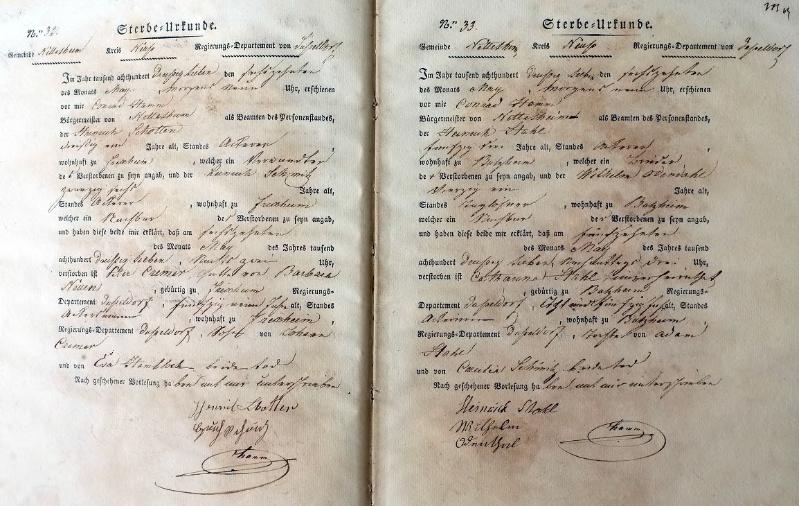 No. 32.
Sterbe-Urkunde.
Gemeinde Nettesheim Kreis Neuss Regierungs-Departement von Düsseldorf
Im Jahr tausend achthundert dreyssig sieben den sechszehnten
des Monats May, morgens neun Uhr, erschienen
vor mir Conrad Hamm
Bürgermeister von Nettesheim als Beamten des Personenstandes,
der Heinrich Schotten
dreissig ein Jahre alt, Standes Ackerer
wohnhaft zu , welcher ein Verwandter
des Verstorbenen zu seyn angab, und der Schmitz
zwanzig sechs Jahre alt,
Standes Ackerer , wohnhaft zu
welcher ein Nachbar des Verstorbenen zu seyn angab,
und haben diese beide mir erklärt, daß am sechszehnten
des Monats May des Jahres tausend
achthundert dreyssig sieben, Nachts zwei Uhr,
verstorben ist Peter Cremer von Barbara
, gebürtig zu Regierungs-
Departement Düsseldorf, fünfzig neun Jahr alt, Standes
Ackersmann , wohnhaft zu ,
Regierungs-Departement Düsseldorf, Sohn von Johann
Cremer
und von Eva beide tod
Nach geschehener Vorlesung haben mit mir unterschrieben
Henrich Schotten
Hamm
No. 33.
Sterbe-Urkunde.
Gemeinde Nettesheim Kreis Neuss Regierungs-Departement von Düsseldorf
Im Jahr tausend achthundert dreyssig sieben den sechszehnten
des Monats May, morgens neun Uhr, erschienen
vor mir Conrad Hamm
Bürgermeister von Nettesheim als Beamten des Personenstandes,
der Heinrich Stahl
fünfzig Jahre alt, Standes Ackerer
wohnhaft zu Butzheim , welcher ein Bruder
der Verstorbenen zu seyn angab, und der Wilhelm Odenthal
vierzig ein Jahre alt,
Standes Taglöhner , wohnhaft zu Butzheim
welcher ein Nachbar der Verstorbenen zu seyn angab,
und haben diese beide mir erklärt, daß am fünfzehnten
des Monats May des Jahres tausend
achthundert dreyssig sieben Nachmittags drei Uhr,
verstorben ist Catharina Stahl
, gebürtig zu Butzheim Regierungs-
Departement Düsseldorf, acht und fünfzig Jahr alt, Standes
Ackerin , wohnhaft zu Butzheim
Regierungs-Departement Düsseldorf, Tochter von Adam
Stahl
und von Schmitz beide tod
Nach geschehener Vorlesung haben mit mir unterschrieben
Heinrich Stahl
Wilhelm
Odenthal
Hamm